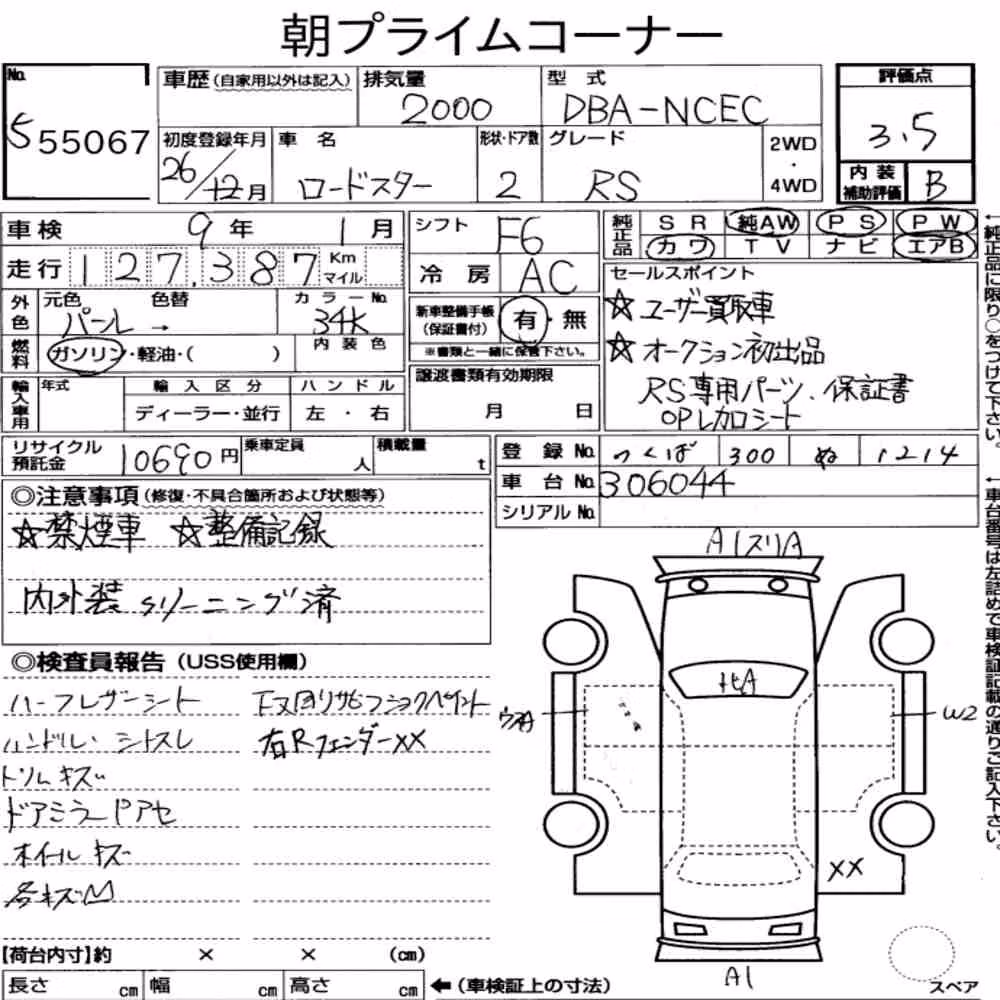 朝プライムコーナー
No. 555067
車歴(自家用以外は記入)
排気量 2000
型式 DBA-NCEC
評価点 3.5
初度登録年月 26/12月
車名 ロードスター
形状・ドア数 2
グレード RS
2WD・4WD
内装補助評価 B
車検 9年 1月
シフト F6
純正品 SR 純AW PS PW
カワ TV ナビ エアB
走行 127,387 Km マイル
冷房 AC
セールスポイント
外色 元色 パール → 色替
カラーNo. 34K
新車整備手帳(保証書付) 有・無
※書類と一緒に保管下さい。
☆ユーザー買取車
☆オークション初出品
RS専用パーツ、保証書
OPレカロシート
燃料 ガソリン・軽油・( )
内装色
輸入車用 年式
輸入区分 ディーラー・並行
ハンドル 左・右
譲渡書類有効期限 月 日
リサイクル預託金 10690円
乗車定員 人
積載量 t
登録No. つくば 300 ぬ 1214
車台No. 306044
シリアルNo.
◎注意事項(修復・不具合箇所および状態等)
☆禁煙車 ☆整備記録
内外装クリーニング済
←純正品に限り○をつけて下さい。
←車台番号は左詰めで車検証記載の通りご記入下さい。
◎検査員報告(USS使用欄)
ハーフレザーシート
ハンドル、シトスレ
トリムキズ
ドアミラー
ホイールキズ
各キズ
右RフェンダーXX
A1スリA
W2
XX
A1
【荷台内寸】約 × × (cm)
長さ cm 幅 cm 高さ cm
←(車検証上の寸法)
スペア